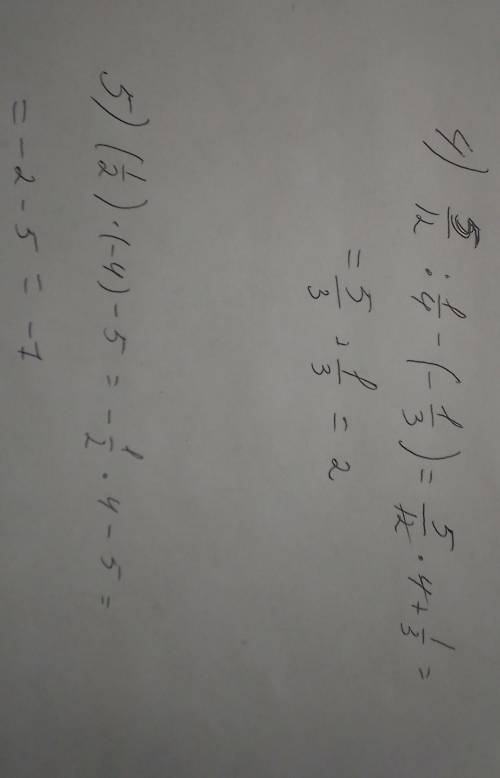 4) 5/12 : 1/4 - (-1/3) = 5/12 · 4 + 1/3 =
= 5/3 + 1/3 = 2
5) (1/2) · (-4) - 5 = -1/2 · 4 - 5 =
= -2 - 5 = -7